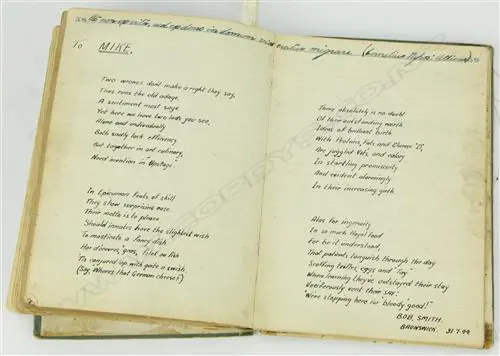 To MIKE.
Two wrongs don't make a right they say,
Thus runs the old adage.
A sentiment most sage
Yet here we have two lads you see,
Alone and individually
Both sadly lack efficiency
But together in art culinary,
Need mention in
In Epicurean feats of skill
They show surprising ease.
Their motto is to please
Should inmates have the slightest wish
To masticate a fancy dish
Hor d'oeuvres, goos, filet on fish
'Tis conjured up with quite a swish,
(Say, Wheres that German cheese?)
There absolutely is no doubt
Of their outstanding worth.
Ideas of brilliant birth
With Proteins, Fats and Cheese "S",
Are juggled Vets, and calory
In startling promiscuity
And evident alarmingly
In their increasing girth.
Alas for ingenuity
In so much Royal food
For be it understood,
That patients languish through the day
Scoffing trifles, eggs and
When learning they've outstayed their stay
Vociferously vent their say:
"We're stopping here for 'bloody' good!"
BOB. SMITH.
BRUNSWICK. 31.7.44